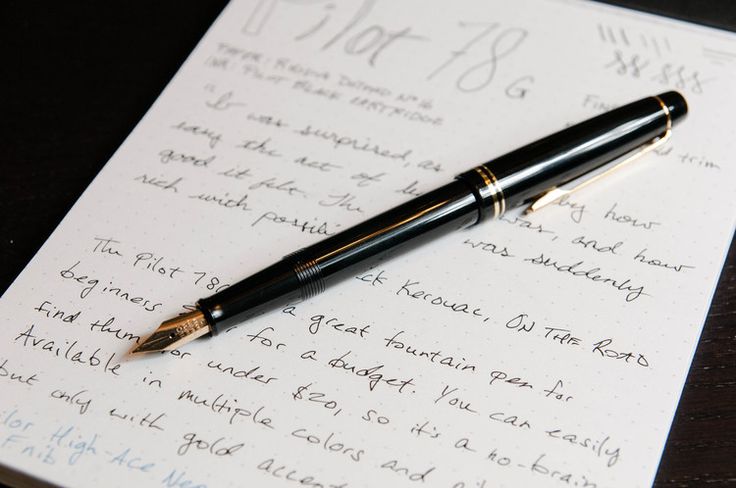 Pilot 78G
Paper: Rhodia DotPad No 16
Ink: Pilot Black Cartridge
Fine
trim
"I was surprised, as by how
easy the act of was, and how
good it felt. The was suddenly
rich with
Kerouac, On the Road
The Pilot 78G a great fountain pen for
beginners for a budget. You can easily
find them for under $20, so it's a no-brain
Available in multiple colors and
but only with gold
High-Ace
F nib